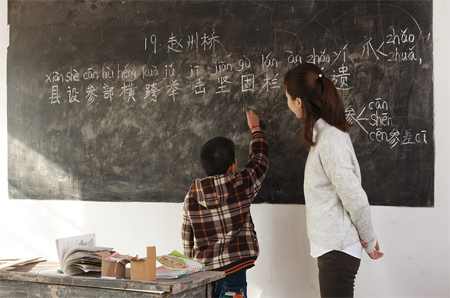 19. 赵州桥
xiàn shè cān bù héng kuà jǔ jī jiān gù lán àn zhǎo yí
县设参部横跨举击坚固栏 遗
爪 zhǎo
zhuǎ
参 cān
shēn
cēn 参差 cī